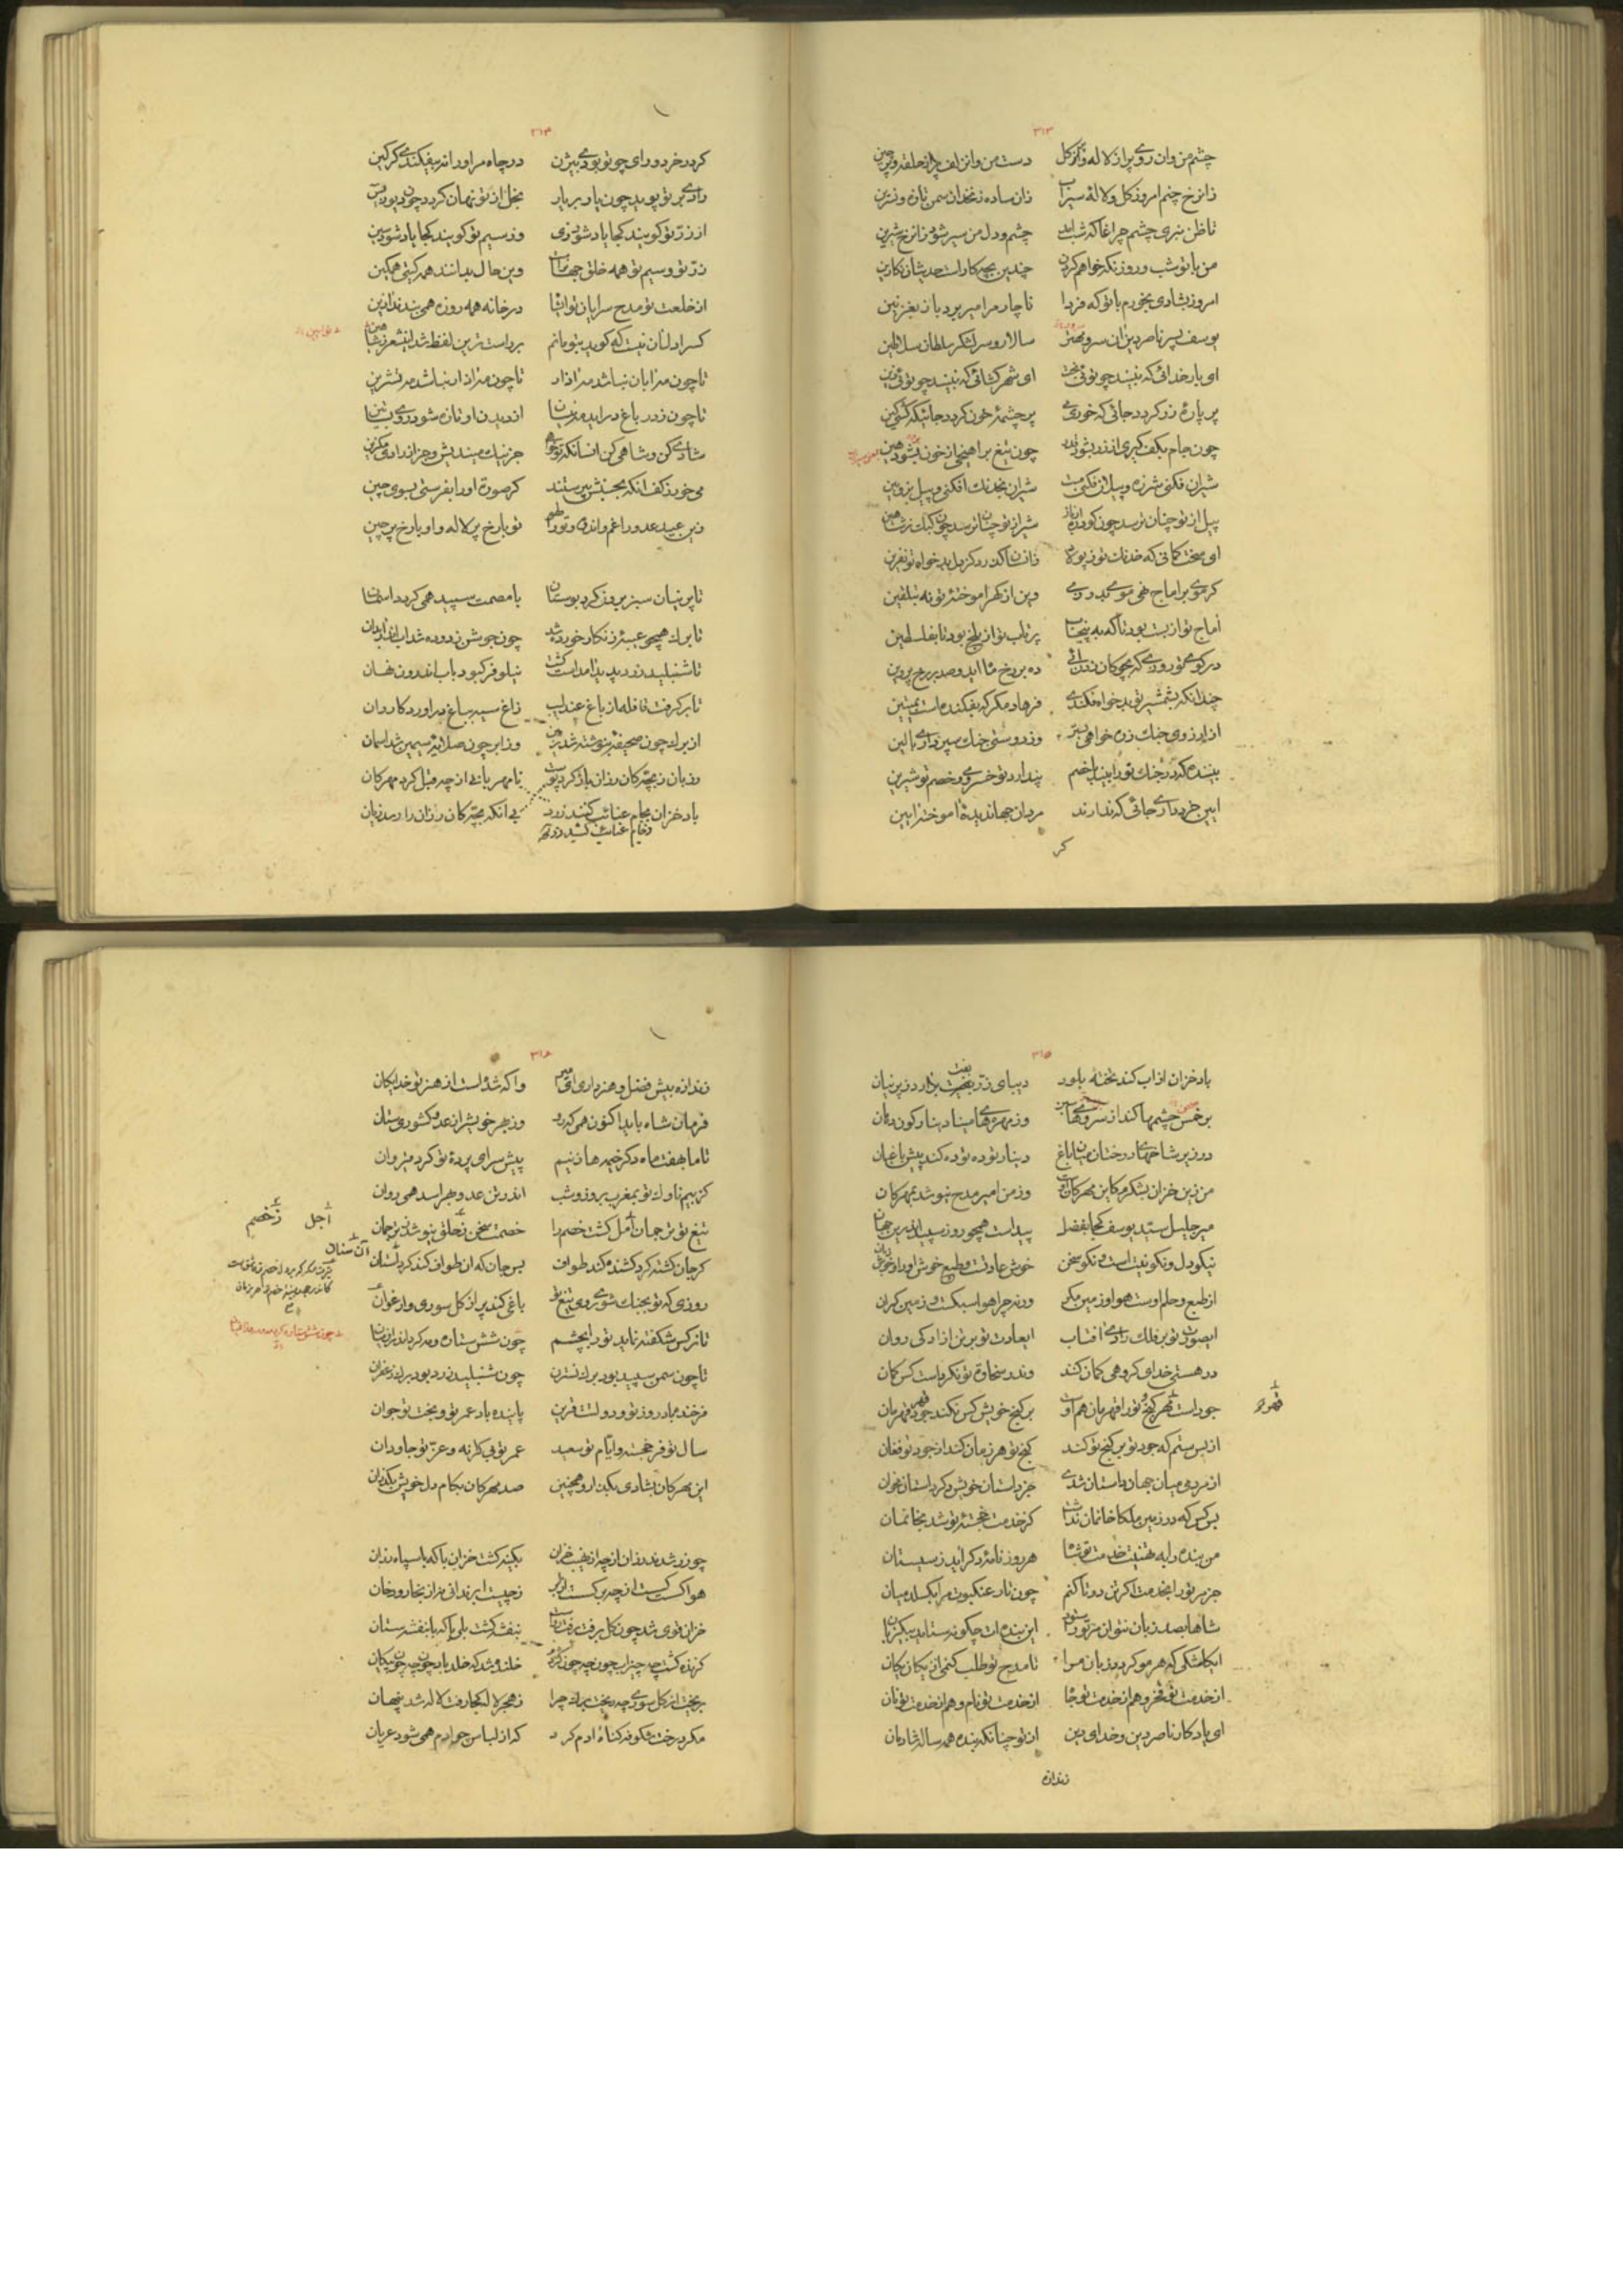 ۳۱۳
چشم من وان روی پر از لاله و پر از گل دست من وان زلف پر از حلقه و پر چین
زان رخ چنم امروز گل و لاله سیراب زان ساده زنخدان سمن تازه و نسرین
تا ظن نبری چشم چراغا که شب آید چشم و دل من سیر شود زان رخ شیرین
من با تو شب و روز نگه خواهم کردن چندین بچه کار است حدیثان نگارین
امروز بشادی بخورم با تو که فردا ناچار مرا میر برد باز بغزنین
یوسف پسر ناصر دین آن سر و مهتر سالار و سر لشکر سلطان سلاطین
ای بار خدائی که نبیند چو توئی تخت ای شهر گشائی که نبیند چو توئی زین
پر پاره زر گردد جائی که خوری می پر چشمه خون گردد جائیکه کشی کین
چون جام بکف گیری از زر بشود قدر چون تیغ بر آهنجی از خون بشود هین
شیران فکنی شرزه و پیلان فکنی مست شیران بخدنگ افکنی و پیل بزوبین
پیل از تو چنان ترسد چون گودره از باز شیر از تو چنان ترسد چون کبک ز شاهین
ای سخت کمانی که خدنگ تو ز پولاد
گر موی بر آماج نهی موی بدوزی وین از گهر آموخته‌ای تو نه بتلقین
آماج تو از بست بود تا که به پنجاب پرتاب تو از بلخ بود تا بفلسطین
چندانکه بشمشیر تو بدخواه فکندی فرهاد مگر که بفکنده است بمیتین
از آرزوی جنگ زره خواهی بستر وز دوستی جنگ سپر داری بالین
بیننده که در جنگ تو را بیند با خصم پندارد تو خسروی و خصم تو شیرین
آیین خرد داری جائی که ندارند مردان جهاندیدهٔ آموخته آیین
کر
۳۱۴
گردد خرد و رای چو تو بودی بیژن در چاه مر او را نه بیفکندی گرگین
رادی بر تو پوید چون یار بر یار بخل از تو نهان گردد چون دیو ز یاسین
از زر تو گویند کجا یاد شود زی وز سیم تو گویند کجا یاد شود سین
زر تو و سیم تو همه خلق جهانراست وین حال بدانند همه گیتی همگین
از خلعت تو مدح سرایان تو آنجا در خانه همه روزه همی بندند آذین
کس را دل آن نیست که گوید بتو مانم
تا چون مه آبان نباشد مه آذار تا چون مه آذار نباشد مه تشرین
تا چون ز در باغ در آید مه نیسان از دیدن او تازه شود روی بساتین
شادی کن و شاهی کن آنسان که تو خواهی جز نیک میندیش و جز از رادی مگزین
می خور ز کف آنکه بحبش بپرستند گر صورت او را بفرستی بسوی چین
زین عید عدو را غم و اندوه و تو را لهو تو با رخ پر لاله و او با رخ پر چین

تا پرنیان سبز برون کرد بوستان با مصمت سپید همی گردد آسمان
تا برگ همچو غیبه زنگار خورده شد چون جوشن زدوده شد آب اندر آبدان
تا شنبلید زرد پدید آمد از بهشت نیلوفر کبود بآب اندرون نهان
تا برگرفت قافله از باغ عندلیب زاغ سیه بباغ در آورد کاروان
از برگ چون صحیفه بنوشته شد زمین وز ابر چون صلایه سیمین شد آسمان
رز بان ز بچگان رزان باز کرد پوست نامهربانی از چه قبل کرد مهرگان
باد خزان بجام عنائب کنند زرد بی آنکه بچگان رزان را رسد زیان
۳۱۵
باد خزان از آب کند تخته بلور دیبای زر بفت بر آرد ز پرنیان
دینار توده توده کند پیش باغبان
من زین خزان بشکرم کاین مهرگان اوست وز من امیر مدح نیوشد بمهرگان
میر جلیل سید یوسف کجا بفضل پیداست همچو روز سپید اندرین جهان
نیکو دل و نکو نیت است و نکو سخن خوش عادت و طبع خوش او را و خوش زبان
از طبع و حلم اوست هوا و زمین مگر ورنه چرا هوا سبکست و زمین گران
ای صورت تو بر فلک رادی آفتاب ای عادت تو بر تن آزادگی روان
در هستی خدای گروهی گمان کنند وندر سخاوت تو نکرده است کس گمان
جود است قهر گنج و تو را قهرمان هم اوست بر گنج خویش کس نکند قهر قهرمان
از بس ستم که جود تو بر گنج تو کند گنج تو هر زمان کند از جود تو فغان
از مردمی میان جهان داستان شدی جز داستان خویش دگر داستان مخوان
بس کس که در زمین ملکا خانمان نداشت کز خدمت خجستهٔ تو شد بخانمان
من بنده را به تهنیت خدمت تو شاها هر روز نامهٔ دگر آید ز سیستان
جز مر تو را بخدمت اگر تن دو تا کنم چون تار عنکبوت مرا بگسلد میان
شاها بصد زبان نتوان مر تو را ستود این بنده‌ات چگونه ستاید بیک زبان
ای کاشکی که هر مو گردد زبان مرا تا مدح تو طلب کنمی از یکان یکان
از خدمت تو فخر و هم از خدمت تو جاه از خدمت تو نام و هم از خدمت تو نان
ای یادگار ناصر دین و خدای دین از تو چنانکه بنده همه ساله شادمان
قهر او
زندازه
۳۱۶
زندازه بیش فضل و هنر داری ای امیر واگه شده است از هنر تو خدایگان
فرمان شاه باید اکنون همی که رو وز بهر خویش از عدو کشوری ستان
تا ما بهفت ماه دگر خیمه ها زنیم پیش سرای پردهٔ تو گرد قیروان
کز بیم ناوک تو بمغرب بروز و شب اندر تن عدو بهراسد همی روان
تیغ تو ترجمان امل گشت خصم را خصمت سخن ز حلق نیوشد ز ترجمان
گر جان کشته گرد کشنده کند طواف بس جان که آن طواف کند گرد آن ستان
روزی که تو بجنگ شوی روی تیغ تو باغی کند پر از گل سوری و ارغوان
تا نرگس شکفته نماید تو را بچشم
تا چون سمن سپید بود برگ نسترن چون شنبلید زرد بود برگ زعفران
فرخنده باد روز تو و دولتت قرین پاینده باد عمر تو و بخت تو جوان
سال تو فرخجسته و ایام تو سعید عمر تو بی کرانه و عز تو جاودان
این مهرگان بشادی بگذار و همچنین صد مهرگان بکام دل خویش بگذران

چو زر شدند رزان از چه از نهیب خزان بکینه گشت خزان با که با سپاه رزان
هوا گسست گسست از چه بر گسست از ابر ز چیست ابر ندانی تو از بخار و دخان
خزان قوی شد چون گل برفت رفت رواست بنفشه گشت بلی با که با بنفشه ستان
بریخت از گل سوری چه ریخت برگ چرا ز هجر لاله کجا رفت لاله شد پنهان
مگر درخت شکوفه گناه آدم کرد که از لباس چو آدم همی شود عریان
اجل ز خصم
آن سنان